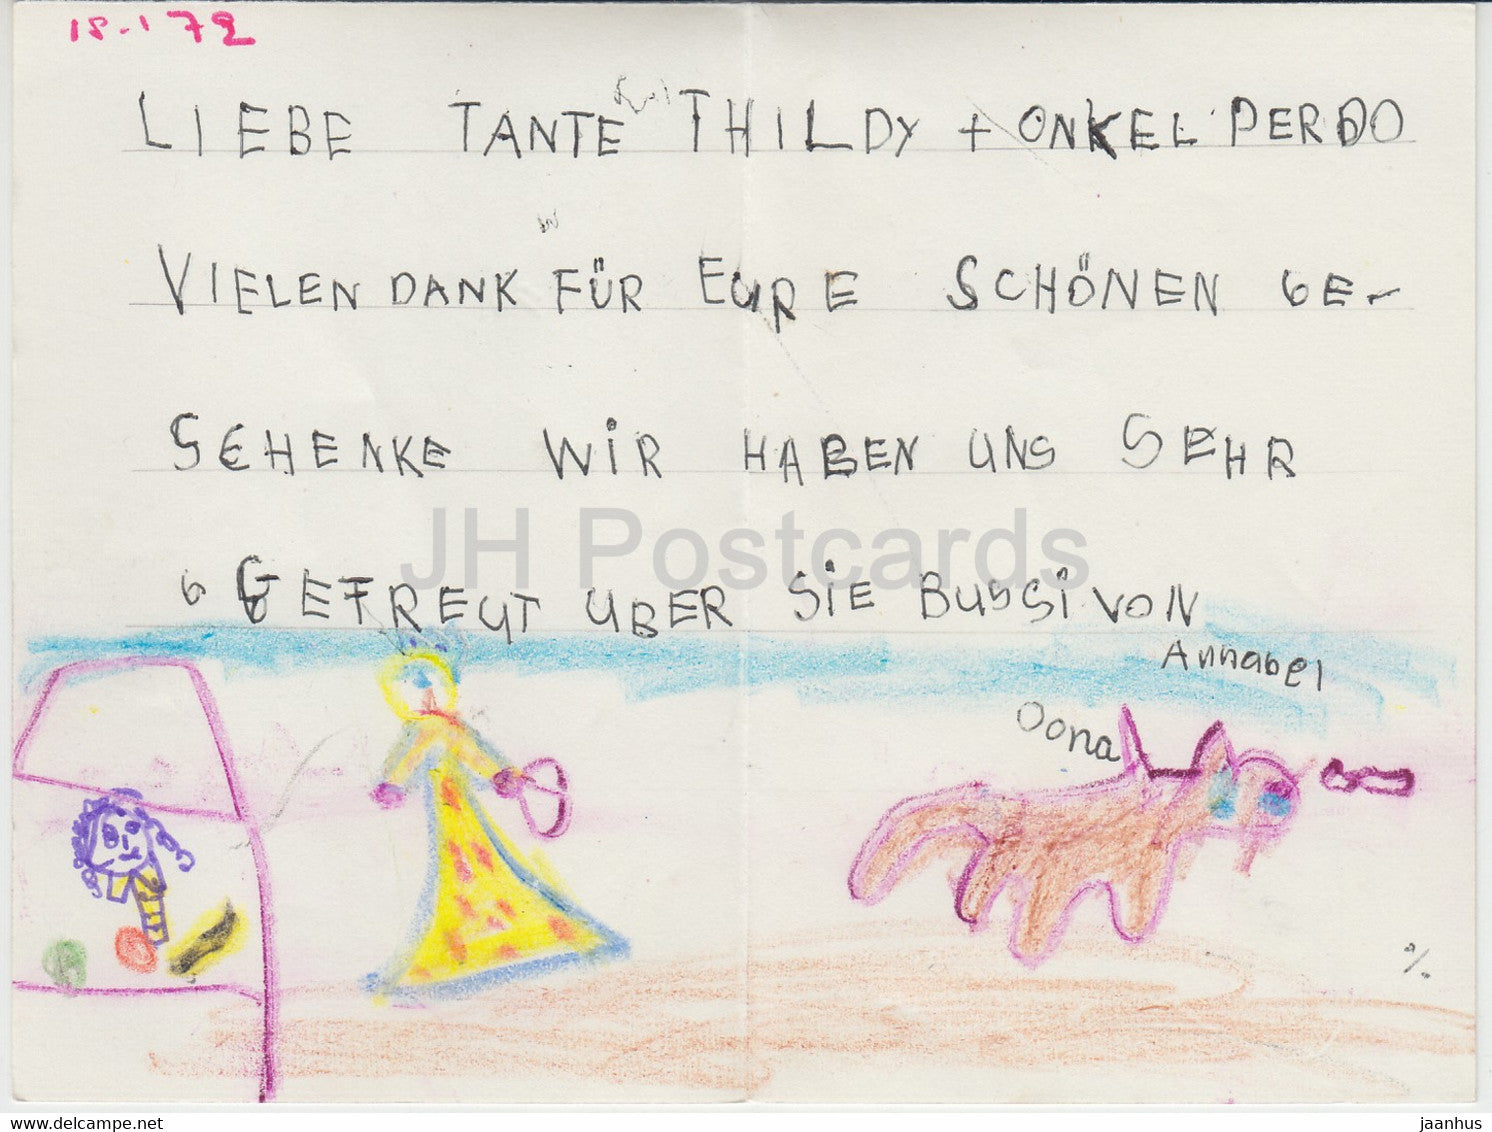 18.1 72
LIEBE TANTE THILDY + ONKEL PERDO
VIELEN DANK FÜR EURE SCHÖNEN GE-
SCHENKE WIR HABEN UNS SEHR
G GEFREUT UBER SIE BUSSI VON
Annabel
Oona
JH Postcards
%
www.delcampe.net
jaanhus